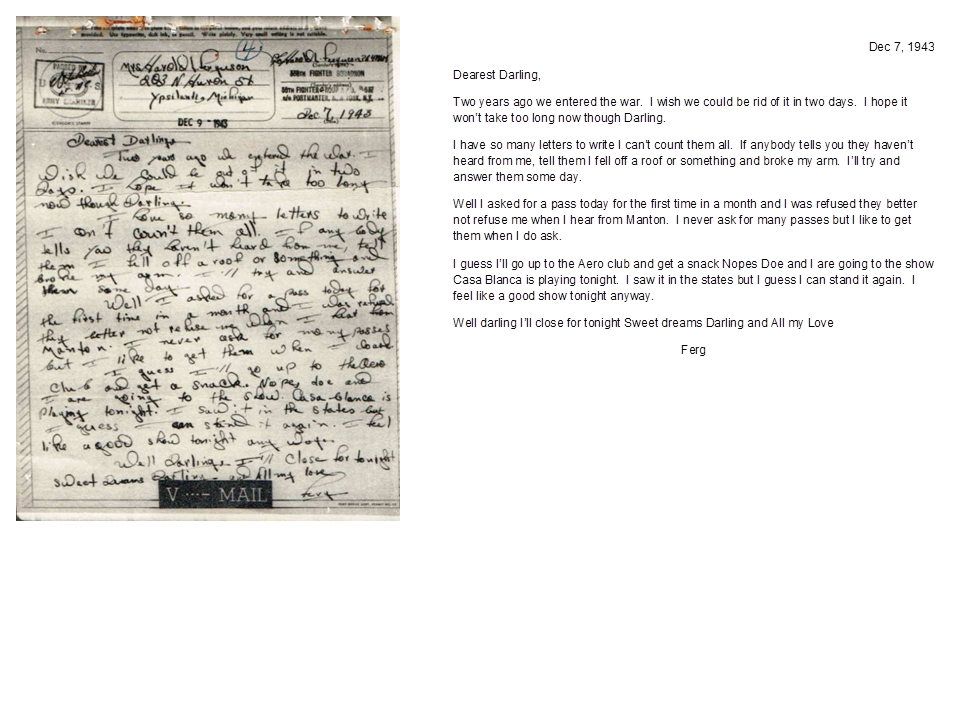 No.
(4)
Mrs Harold L Ferguson
203 N. Huron St
Ypsilanti, Michigan
DEC 9 - 1943
PASSED BY
U S
ARMY EXAMINER
FIGHTER SQUADRON
C/O POSTMASTER, N.Y.
Dec 7, 1943
Dearest Darling
Two years ago we entered the war. I
wish we could be out of it in two
Days. I hope it won't take too long
now though Darling.
I have so many letters to write
I can't count them all. If any body
tells you they haven't heard from me, tell
them I fell off a roof or something and
broke my arm. I'll try and answer
them some day.
Well I asked for a pass today for
the first time in a month and I was refused
they better not refuse me when I hear from
Manton. I never ask for many passes
but I like to get them when I do ask
I guess I'll go up to the Aero
Club and get a snack. Nope, doe and
I are going to the show. Casa Blanca is
playing tonight. I saw it in the states but
I guess I can stand it again. I feel
like a good show tonight any way.
Well darling I'll close for tonight
sweet dreams Darling and All my love
Ferg
V ···– MAIL
Dec 7, 1943
Dearest Darling,
Two years ago we entered the war.  I wish we could be rid of it in two days.  I hope it
won't take too long now though Darling.
I have so many letters to write I can't count them all.  If anybody tells you they haven't
heard from me, tell them I fell off a roof or something and broke my arm.  I'll try and
answer them some day.
Well I asked for a pass today for the first time in a month and I was refused they better
not refuse me when I hear from Manton.  I never ask for many passes but I like to get
them when I do ask.
I guess I'll go up to the Aero club and get a snack Nopes Doe and I are going to the show
Casa Blanca is playing tonight.  I saw it in the states but I guess I can stand it again.  I
feel like a good show tonight anyway.
Well darling I'll close for tonight Sweet dreams Darling and All my Love
Ferg